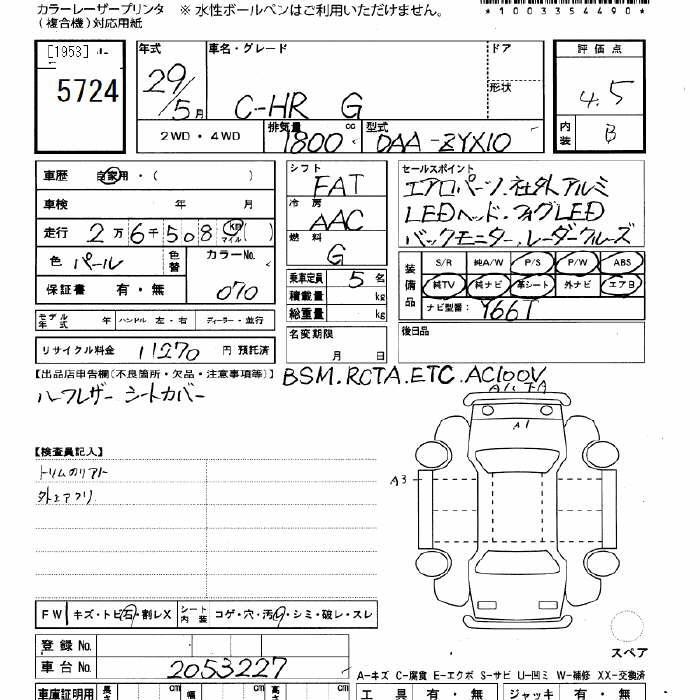 カラーレーザープリンタ ※ 水性ボールペンはご利用いただけません。
(複合機)対応用紙
*1003554490*
[1953]
5724
年式 車名・グレード ドア 評価点
29/5月 C-HR G 形状 4.5
2WD・4WD 排気量 1800 cc 型式 DAA-ZYX10 内装 B
車歴 自家用・( )
車検 年 月
走行 2万6千508 km マイル ( )
色 パール 色替 カラーNo. 070
保証書 有・無
モデル年式 年 ハンドル 左・右 ディーラー・並行
リサイクル料金 11270 円 預託済
シフト FAT
冷房 AAC
燃料 G
乗車定員 5 名
積載量 kg
総重量 kg
名変期限
月 日
セールスポイント
エアロパーツ.社外アルミ
LEDヘッド.フォグLED
バックモニター.レーダークルーズ
装備品 S/R 純A/W P/S P/W ABS
純TV 純ナビ 革シート 外ナビ エアB
ナビ型番:Y66T
後日品
【出品店申告欄(不良箇所・欠品・注意事項等)】 BSM.RCTA.ETC.AC100V
ハーフレザー シートカバー
A1
A3
【検査員記入】
FW キズ・トビ石・割レX シート内装 コゲ・穴・汚レ・シミ・破レ・スレ
スペア
登録 No.
車台 No. 2053227
A-キズ C-腐食 E-エクボ S-サビ U-凹ミ W-補修 XX-交換済
車庫証明用 長さ cm 幅 cm 高さ cm 工具 有・無 ジャッキ 有・無